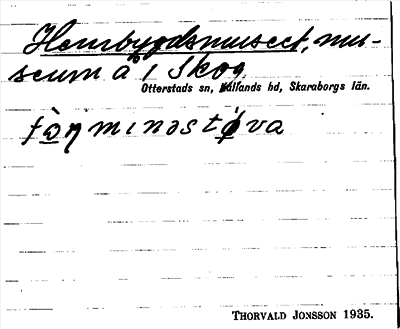 Hembygdsmuseet, mu-
seum å 1 Skog
Otterstads sn, Kållands hd, Skaraborgs län.
fòŋminəstǿva
THORVALD JONSSON 1935.